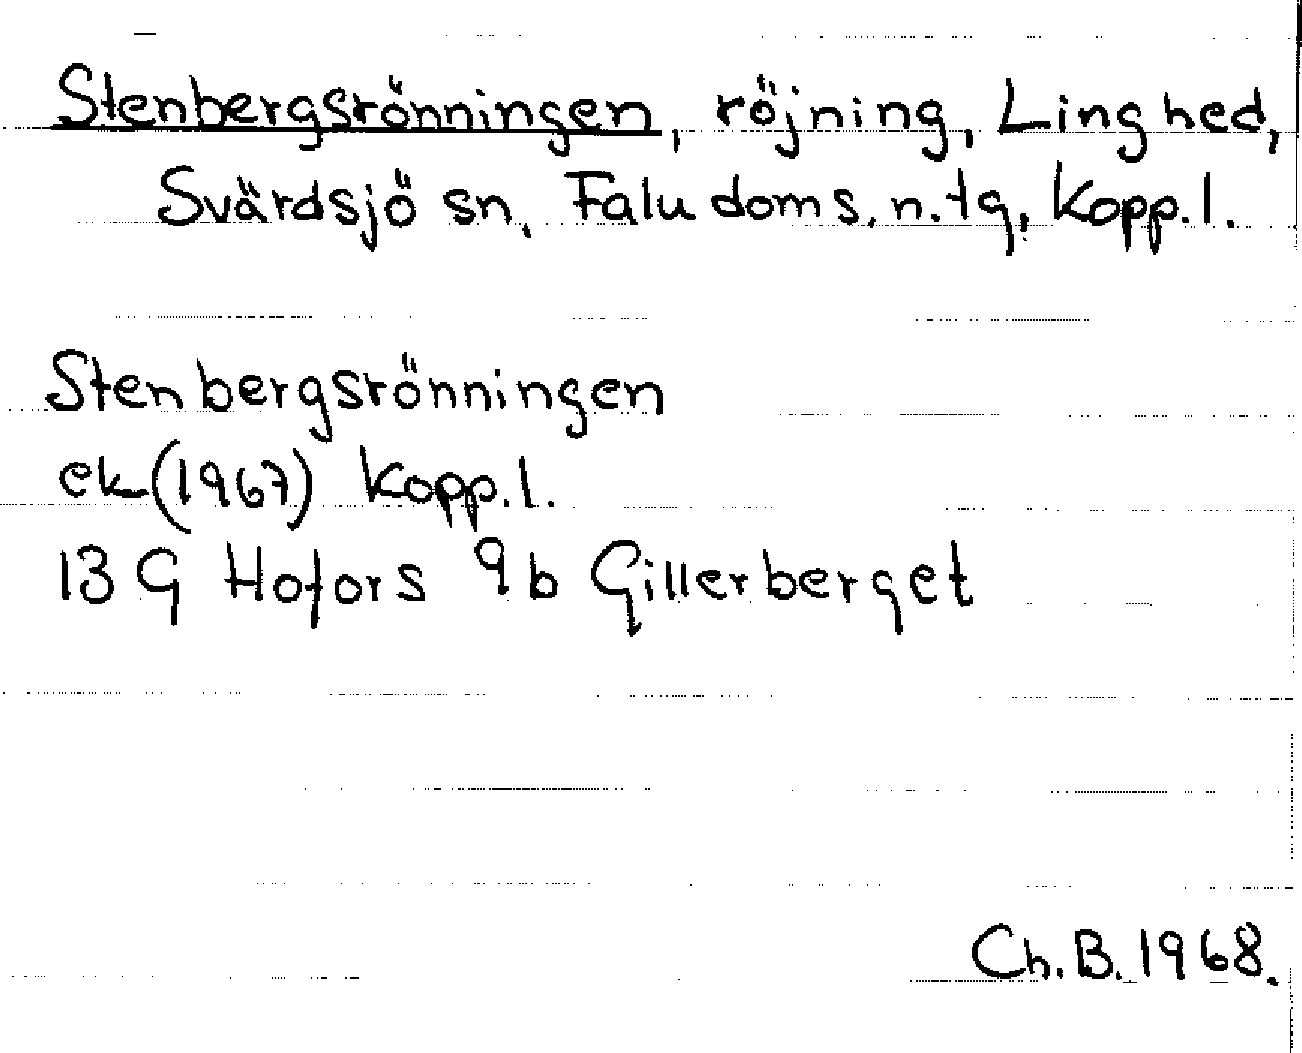 Stenbergsrönningen, röjning, Linghed,
Svärdsjö sn, Falu doms. n. tg, Kopp. l.
Stenbergsrönningen
ek (1967) Kopp. l.
13 G Hofors 9b Gillerberget
Ch. B. 1968.